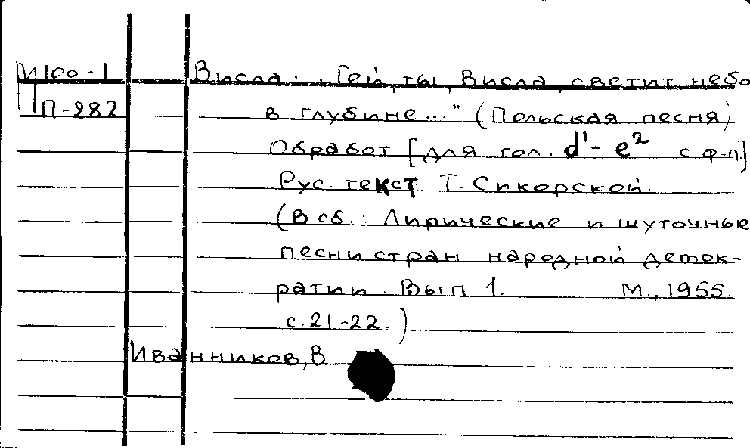 И60-1 Висла. „Гей, ты, Висла, светит небо
П-282 в глубине..." (Польская песня)
Обработ [для гол. d'-e² с ф-п.]
Рус. текст Т. Сикорской.
(В сб.: Лирические и шуточные
песни стран народной демок-
ратии. Вып 1. М., 1955.
с. 21-22.)
Иванников, В